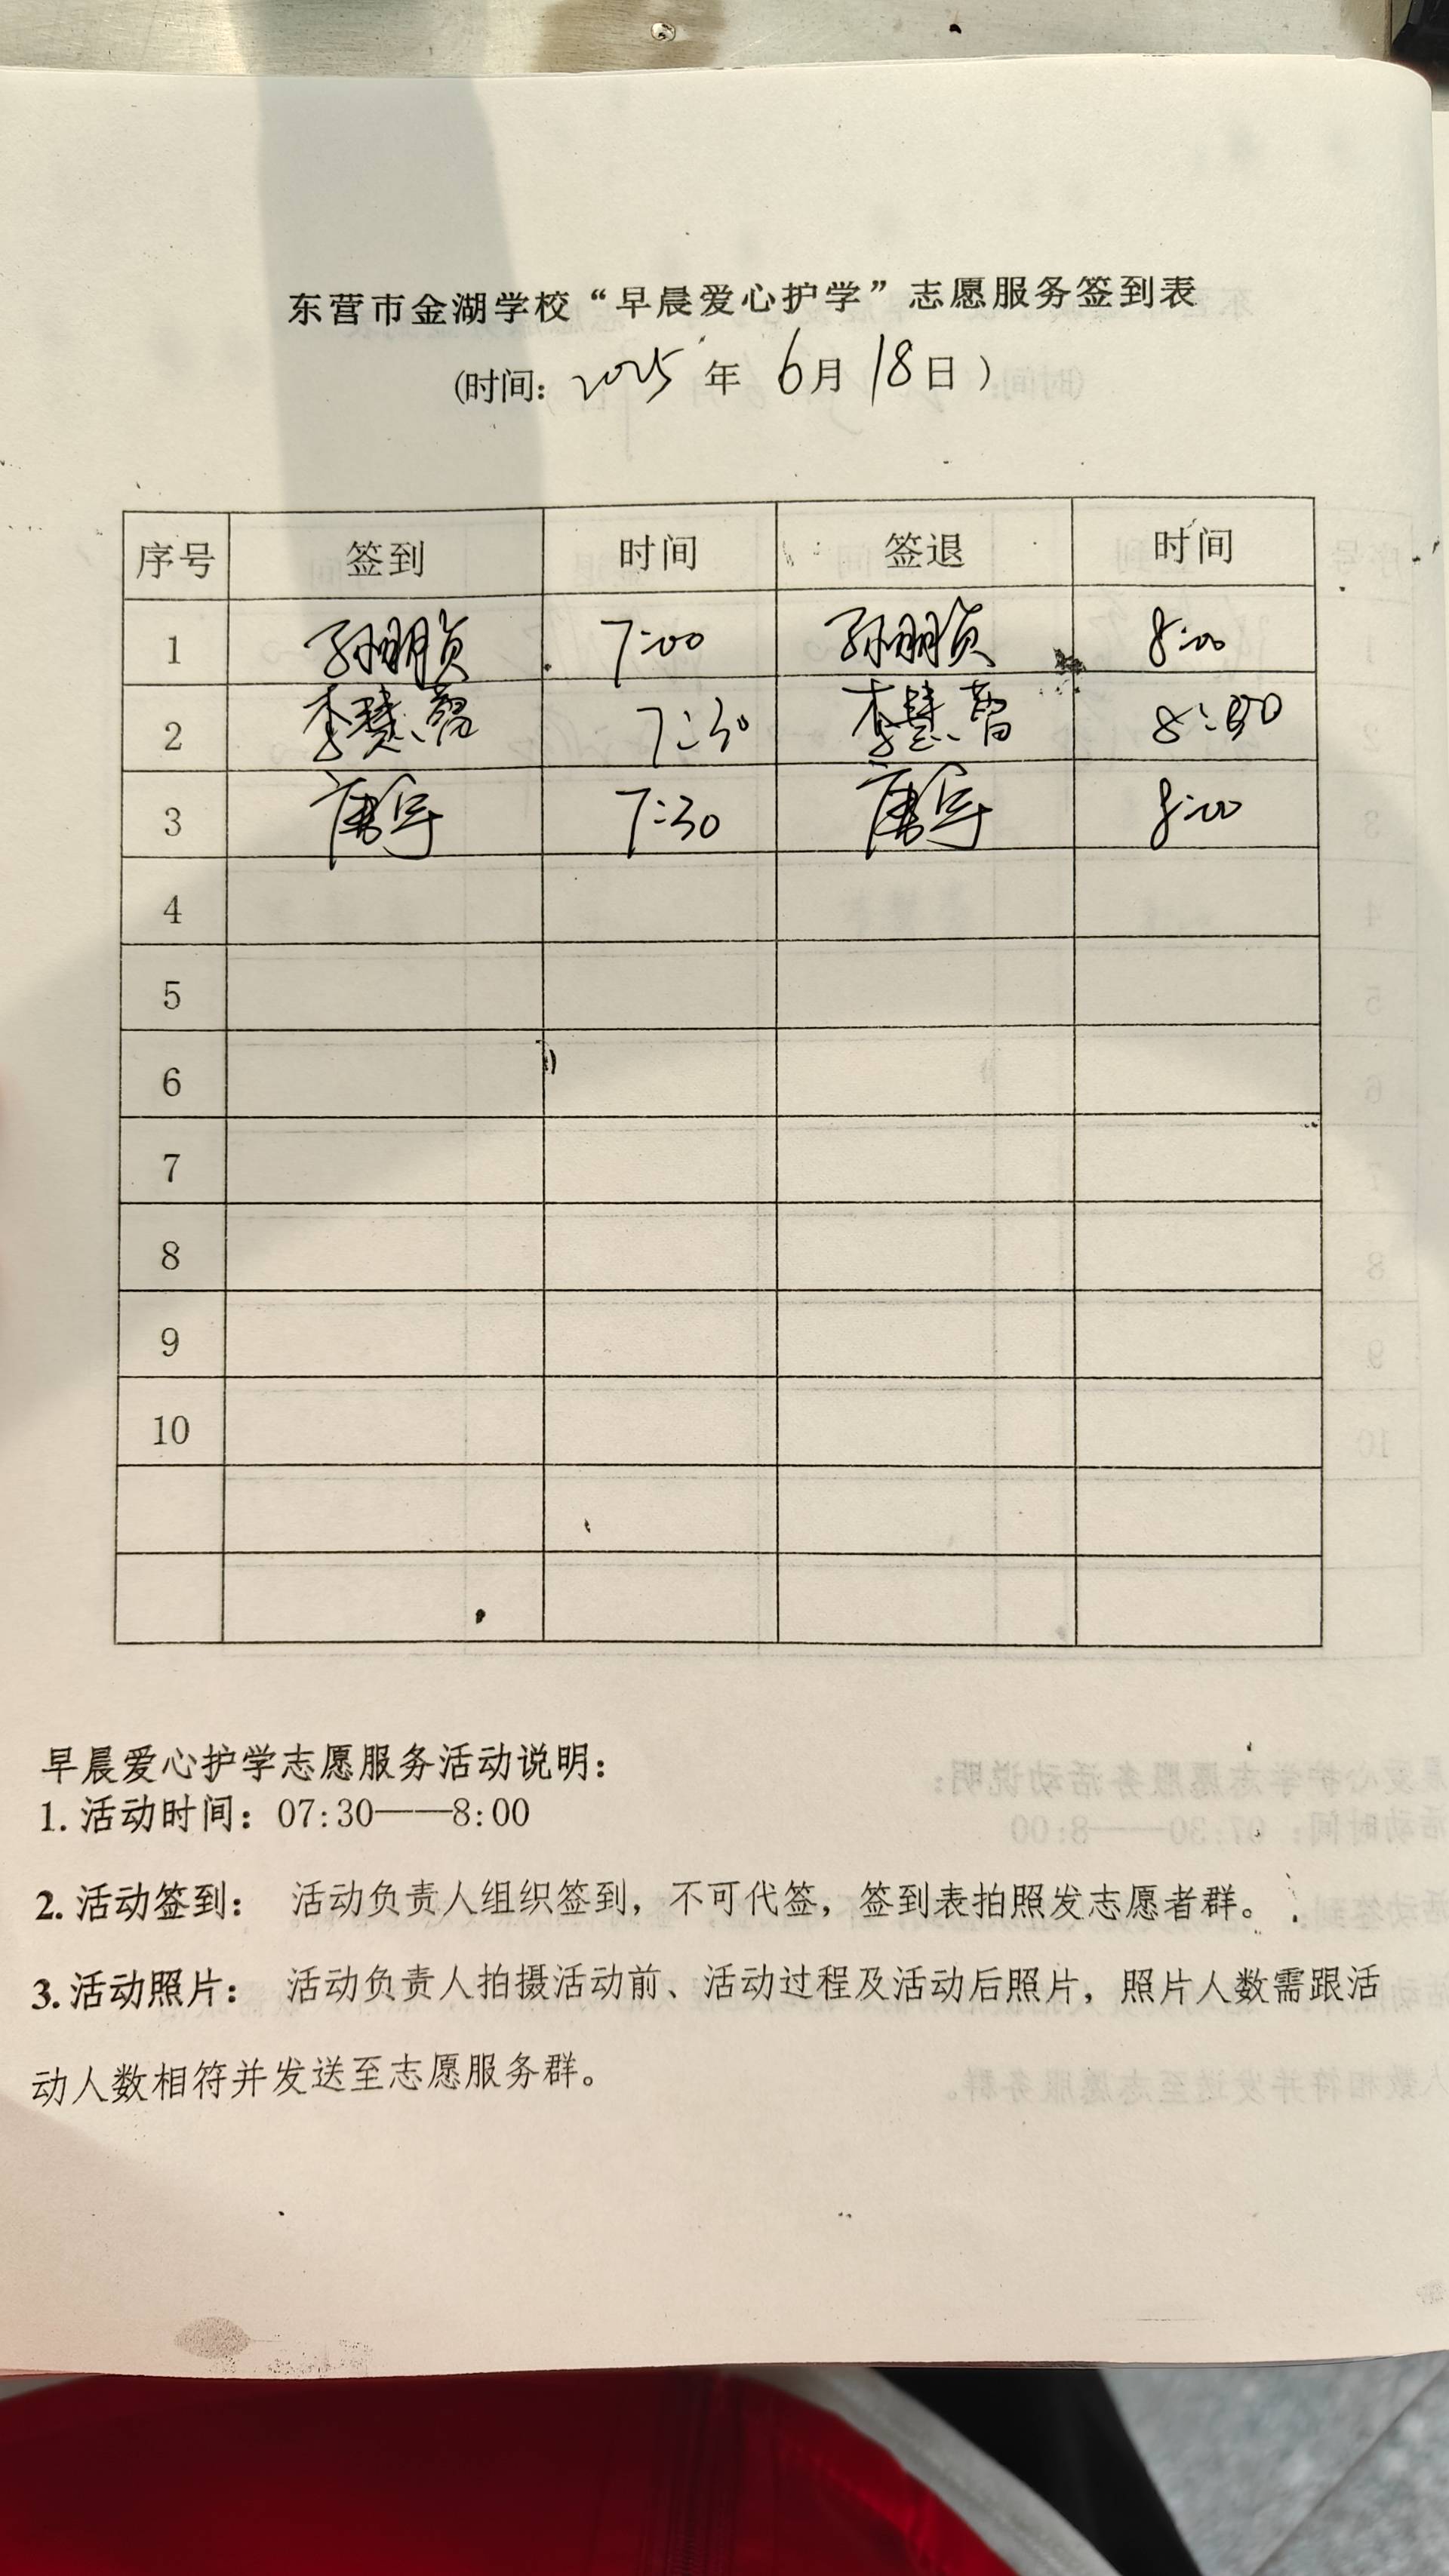 东营市金湖学校“早晨爱心护学”志愿服务签到表
(时间: 2025 年 6月 18日)
序号 签到 时间 签退 时间
1 孙丽贞 7:00 孙丽贞 8:00
2 李慧 7:30 李慧 8:00
3 唐军 7:30 唐军 8:00
4
5
6
7
8
9
10
早晨爱心护学志愿服务活动说明:
1.活动时间: 07:30——8:00
2.活动签到: 活动负责人组织签到, 不可代签, 签到表拍照发志愿者群。
3.活动照片: 活动负责人拍摄活动前、活动过程及活动后照片, 照片人数需跟活
动人数相符并发送至志愿服务群。